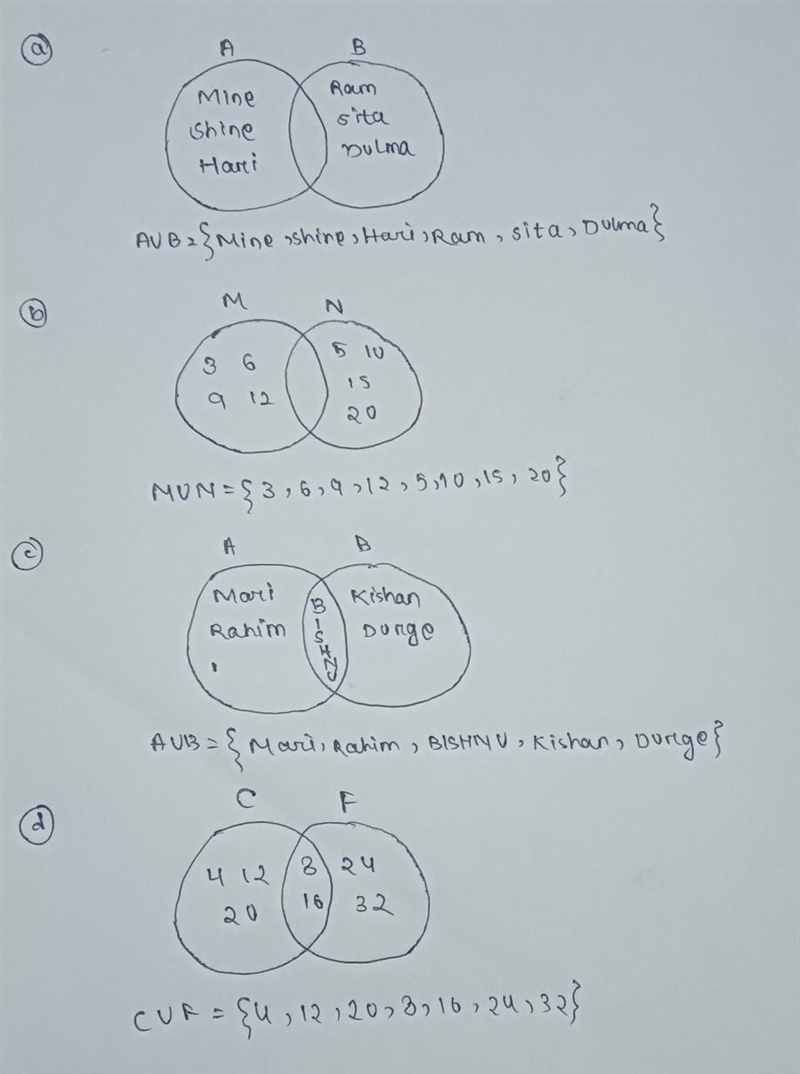 a
A B
Mine Ram
Shine Sita
Hari Dulma
A∪B={Mine, shine, Hari, Ram, sita, Dulma}
b
M N
3 6 5 10
9 12 15
20
M∪N={3, 6, 9, 12, 5, 10, 15, 20}
c
A B
Mari BISHNU Kishan
Rahim Durge
A∪B={Mari, Rahim, BISHNU, Kishan, Durge}
d
C F
4 12 8 24
20 16 32
C∪F={4, 12, 20, 8, 16, 24, 32}